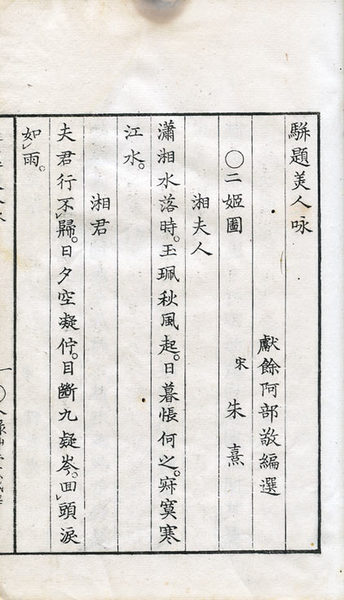 駢題美人咏
獻餘阿部敬編選
○二姬圖
宋 朱熹
湘夫人
瀟湘水落時。玉珮秋風起。日暮悵何之。寂寞寒
江水。
湘君
夫君行不歸。日夕空凝佇。目斷九疑岑。回頭淚
如雨。